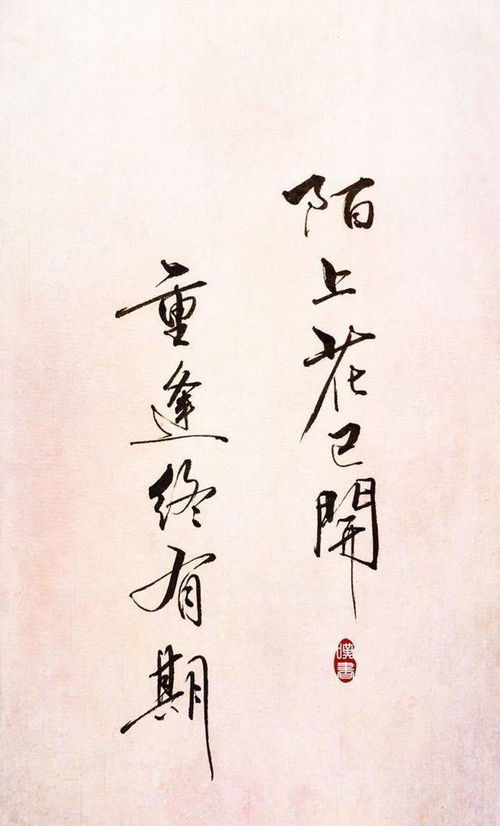 陌上花已開
重逢終有期